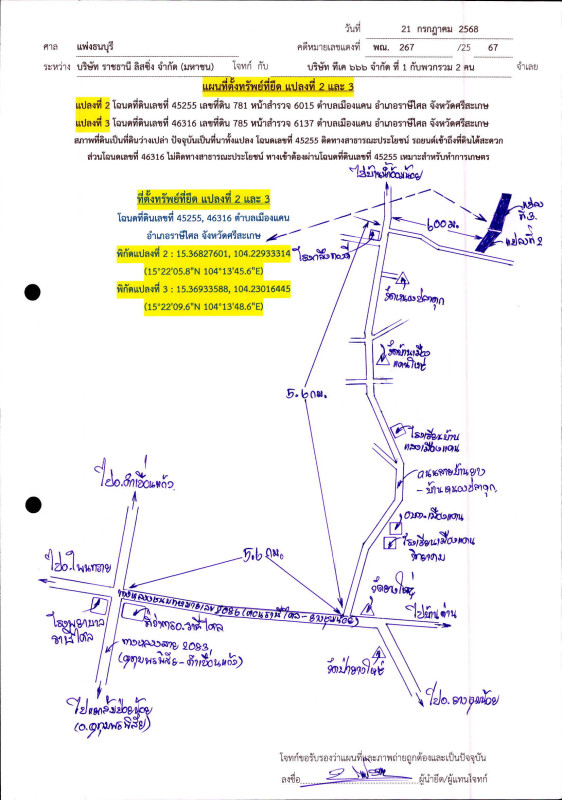 วันที่ 21 กรกฎาคม 2568
ศาล แพ่งธนบุรี คดีหมายเลขแดงที่ พณ. 267 /25 67
ระหว่าง บริษัท ราชธานี ลิสซิ่ง จำกัด (มหาชน) โจทก์ กับ บริษัท ทีเค ๖๖๖ จำกัด ที่ 1 กับพวกรวม 2 คน จำเลย
แผนที่ตั้งทรัพย์ที่ยึด แปลงที่ 2 และ 3
แปลงที่ 2 โฉนดที่ดินเลขที่ 45255 เลขที่ดิน 781 หน้าสำรวจ 6015 ตำบลเมืองแคน อำเภอราษีไศล จังหวัดศรีสะเกษ
แปลงที่ 3 โฉนดที่ดินเลขที่ 46316 เลขที่ดิน 785 หน้าสำรวจ 6137 ตำบลเมืองแคน อำเภอราษีไศล จังหวัดศรีสะเกษ
สภาพที่ดินเป็นที่ดินว่างเปล่า ปัจจุบันเป็นที่นาทั้งแปลง โฉนดเลขที่ 45255 ติดทางสาธารณะประโยชน์ รถยนต์เข้าถึงที่ดินได้สะดวก
ส่วนโฉนดเลขที่ 46316 ไม่ติดทางสาธารณะประโยชน์ ทางเข้าต้องผ่านโฉนดที่ดินเลขที่ 45255 เหมาะสำหรับทำการเกษตร
ที่ตั้งทรัพย์ที่ยึด แปลงที่ 2 และ 3
โฉนดที่ดินเลขที่ 45255, 46316 ตำบลเมืองแคน
อำเภอราษีไศล จังหวัดศรีสะเกษ
พิกัดแปลงที่ 2 : 15.36827601, 104.22933314
(15°22'05.8"N 104°13'45.6"E)
พิกัดแปลงที่ 3 : 15.36933588, 104.23016445
(15°22'09.6"N 104°13'48.6"E)
แปลง
ที่ 3
แปลงที่ 2
600 ม.
วัดหนองปลาดุก
วัดบ้านเมือง
แคนใหญ่
5.6 กม.
โรงเรียนบ้าน
เมืองแคน
ถนนสายบ้านยาง
- บ้านหนองปลาดุก
อบต.เมืองแคน
โรงเรียนเมืองแคน
วิทยาคม
ไปอ.โพนทราย
5.6 กม.
วัดยางใหญ่
ไปบ้านด่าน
โรงพยาบาล
ราษีไศล
ที่ว่าการอ.ราษีไศล
ทางหลวงสาย 2083
วัดป่ายางใหญ่
ไปอ.ยางชุมน้อย
(อ.อุทุมพรพิสัย)
โจทก์ขอรับรองว่าแผนที่และภาพถ่ายถูกต้องและเป็นปัจจุบัน
ลงชื่อ ผู้นำยึด/ผู้แทนโจทก์